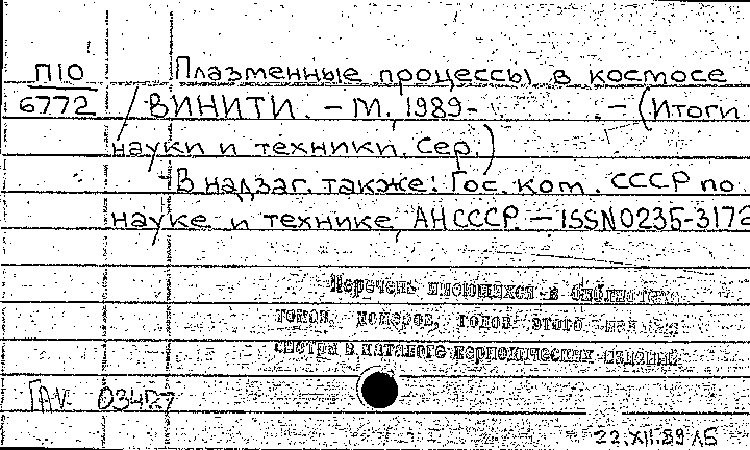 П10 Плазменные процессы в космосе
6772 / ВИНИТИ. – М., 1989- – (Итоги
науки и техники. Сер.)
В надзаг. также: Гос. ком. СССР по
науке и технике, АН СССР. – ISSN 0235-3172
Перечень имеющихся в библиотеке
томов, номеров, годов этого
смотри в каталоге периодических изданий
22.XII.89